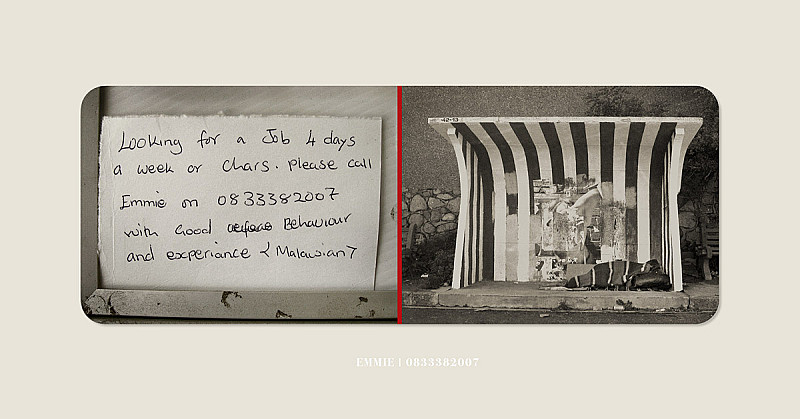 Looking for a Job 4 days
a week or Chars. Please call
Emmie on 0833382007
with Good Behaviour
and experiance < Malawian >
42-13
EMMIE | 0833382007